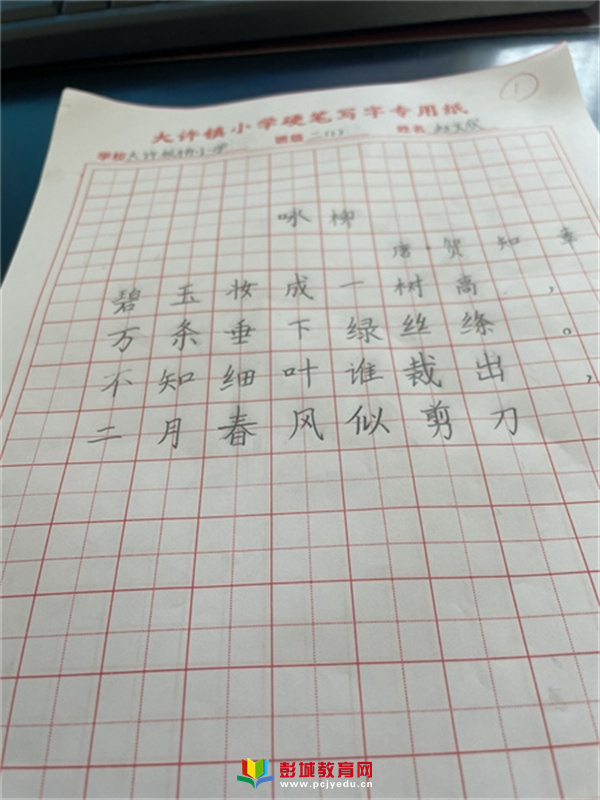 ①
大许镇小学硬笔写字专用纸
学校 大许 小学 班级 二(1) 姓名
咏柳
唐·贺知章
碧玉妆成一树高，
万条垂下绿丝绦。
不知细叶谁裁出，
二月春风似剪刀
彭城教育网
www.pcjyedu.cn